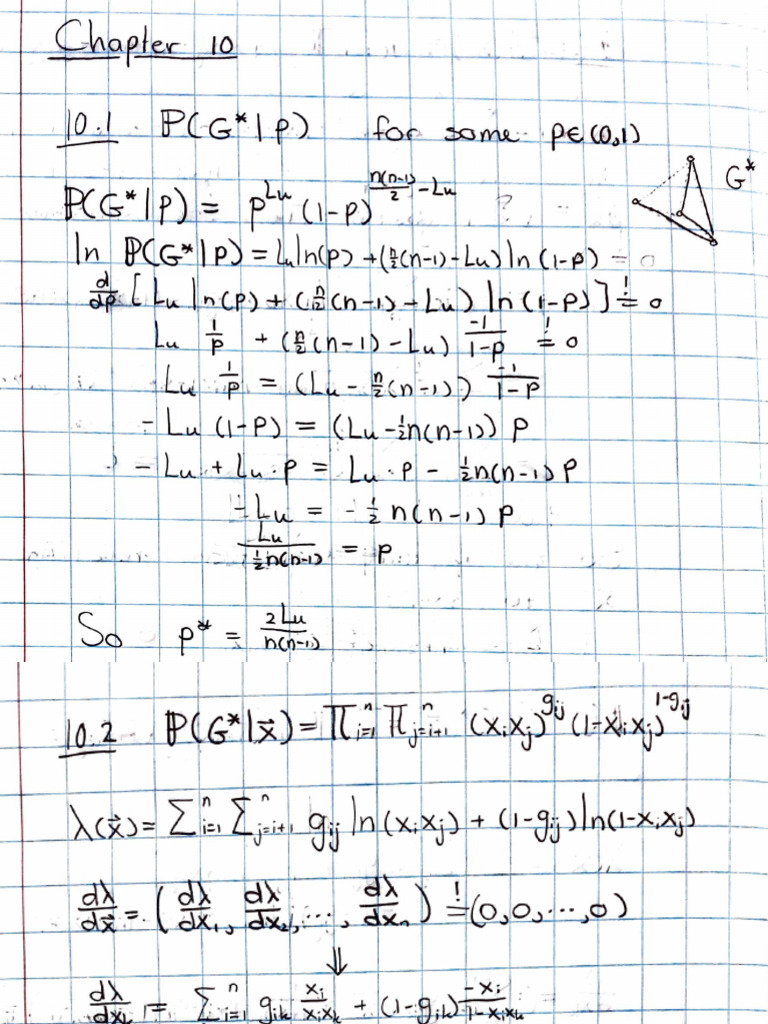 Chapter 10
10.1 ℙ(G*|p) for some p∈(0,1)
G*
ℙ(G*|p) = p^{Lu} (1-p)^{n(n-1)/2 - Lu} ?
ln ℙ(G*|p) = Lu ln(p) + (n/2(n-1)-Lu) ln(1-p) = 0
d/dp [Lu ln(p) + (n/2(n-1) - Lu) ln(1-p)] =! 0
Lu 1/p + (n/2(n-1) - Lu) -1/(1-p) =! 0
Lu 1/p = (Lu - n/2(n-1)) -1/(1-p)
- Lu (1-p) = (Lu - ½n(n-1)) p
- Lu + Lu·p = Lu·p - ½n(n-1)p
- Lu = - ½ n(n-1) p
Lu/(½n(n-1)) = p
So p* = 2Lu/(n(n-1))
10.2 ℙ(G*|x⃗) = ∏_{i=1}^{n} ∏_{j=i+1}^{n} (x_i x_j)^{g_ij} (1-x_i x_j)^{1-g_ij}
λ(x⃗) = ∑_{i=1}^{n} ∑_{j=i+1}^{n} g_ij ln(x_i x_j) + (1-g_ij) ln(1-x_i x_j)
dλ/dx⃗ = (dλ/dx_1, dλ/dx_2, ..., dλ/dx_n) =! (0,0,...,0)
⇓
dλ/dx_k = ∑_{i=1}^{n} g_ik x_i/(x_i x_k) + (1-g_ik) -x_i/(1-x_i x_k)